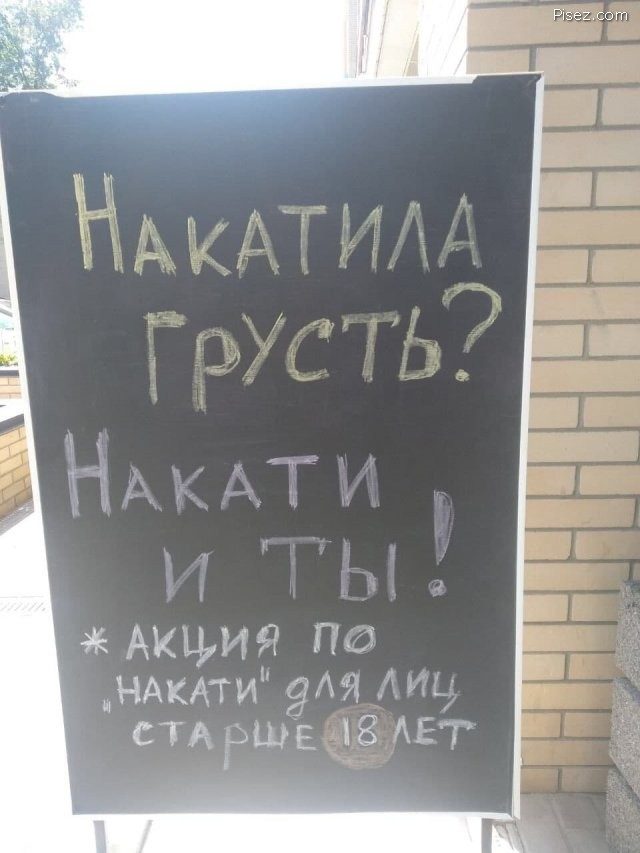 Pisez.com
Накатила
грусть?
Накати
и ты!
* акция по
„накати" для лиц
старше 18 лет